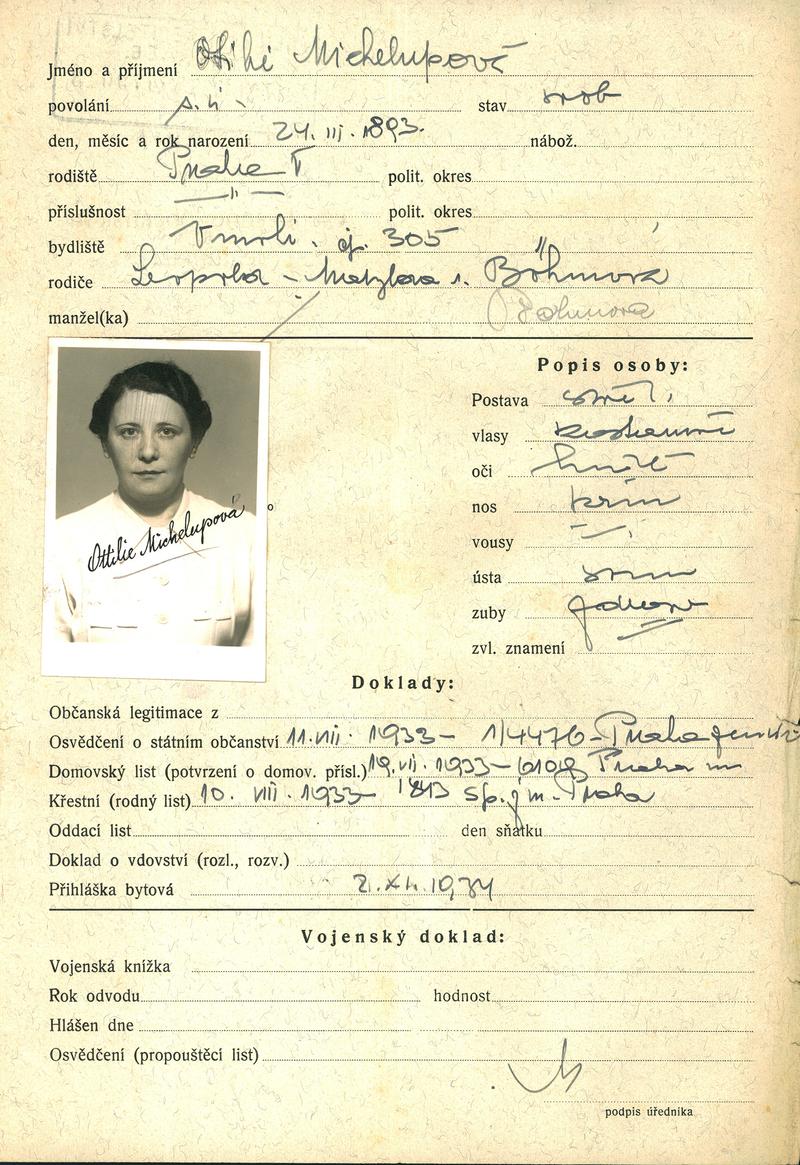 Jméno a příjmení Otilie Michelupová
povolání s. ú. stav svob
den, měsíc a rok narození 24. III. 1893. nábož.
rodiště Praha V polit. okres
příslušnost — " — polit. okres
bydliště čj. 305
rodiče Leopold - r. Böhmova
manžel(ka) Böhmova
Popis osoby:
Postava stř.
vlasy
oči hněd
nos
vousy —
ústa
zuby
zvl. znamení
Ottilie Michelupová
Doklady:
Občanská legitimace z
Osvědčení o státním občanství 11. VII. 1933 - 1/4476 - Praha
Domovský list (potvrzení o domov. přísl.) 19. VI. 1933 - Praha
Křestní (rodný list) 10. VIII. 1933 Praha
Oddací list den sňatku
Doklad o vdovství (rozl., rozv.)
Přihláška bytová 2. XI. 1934
Vojenský doklad:
Vojenská knížka
Rok odvodu hodnost
Hlášen dne
Osvědčení (propouštěcí list)
podpis úředníka